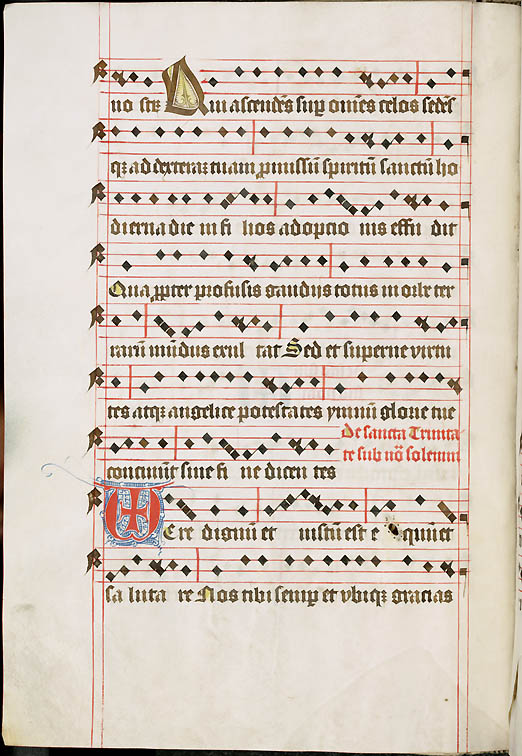 no strū Qui ascendēs suꝑ om̄es celos sedēs
qꝫ ad dexteraꝫ tuam ꝓmissū spiritū sanctū ho
dierna die in fi lios adoptio nis effu dit
Qua ꝓpter profusis gaudijs totus in orbe ter
rarū mūdus exul tat Sed et superne virtu
tes atqꝫ angelice potestates ymnū glorie tue
De sancta Trinita
concinūt sine fi ne dicen tes
te sub nō solenni
Ere dignū et iustū est e quū et
sa luta re Nos tibi semꝑ et vbiqꝫ gracias